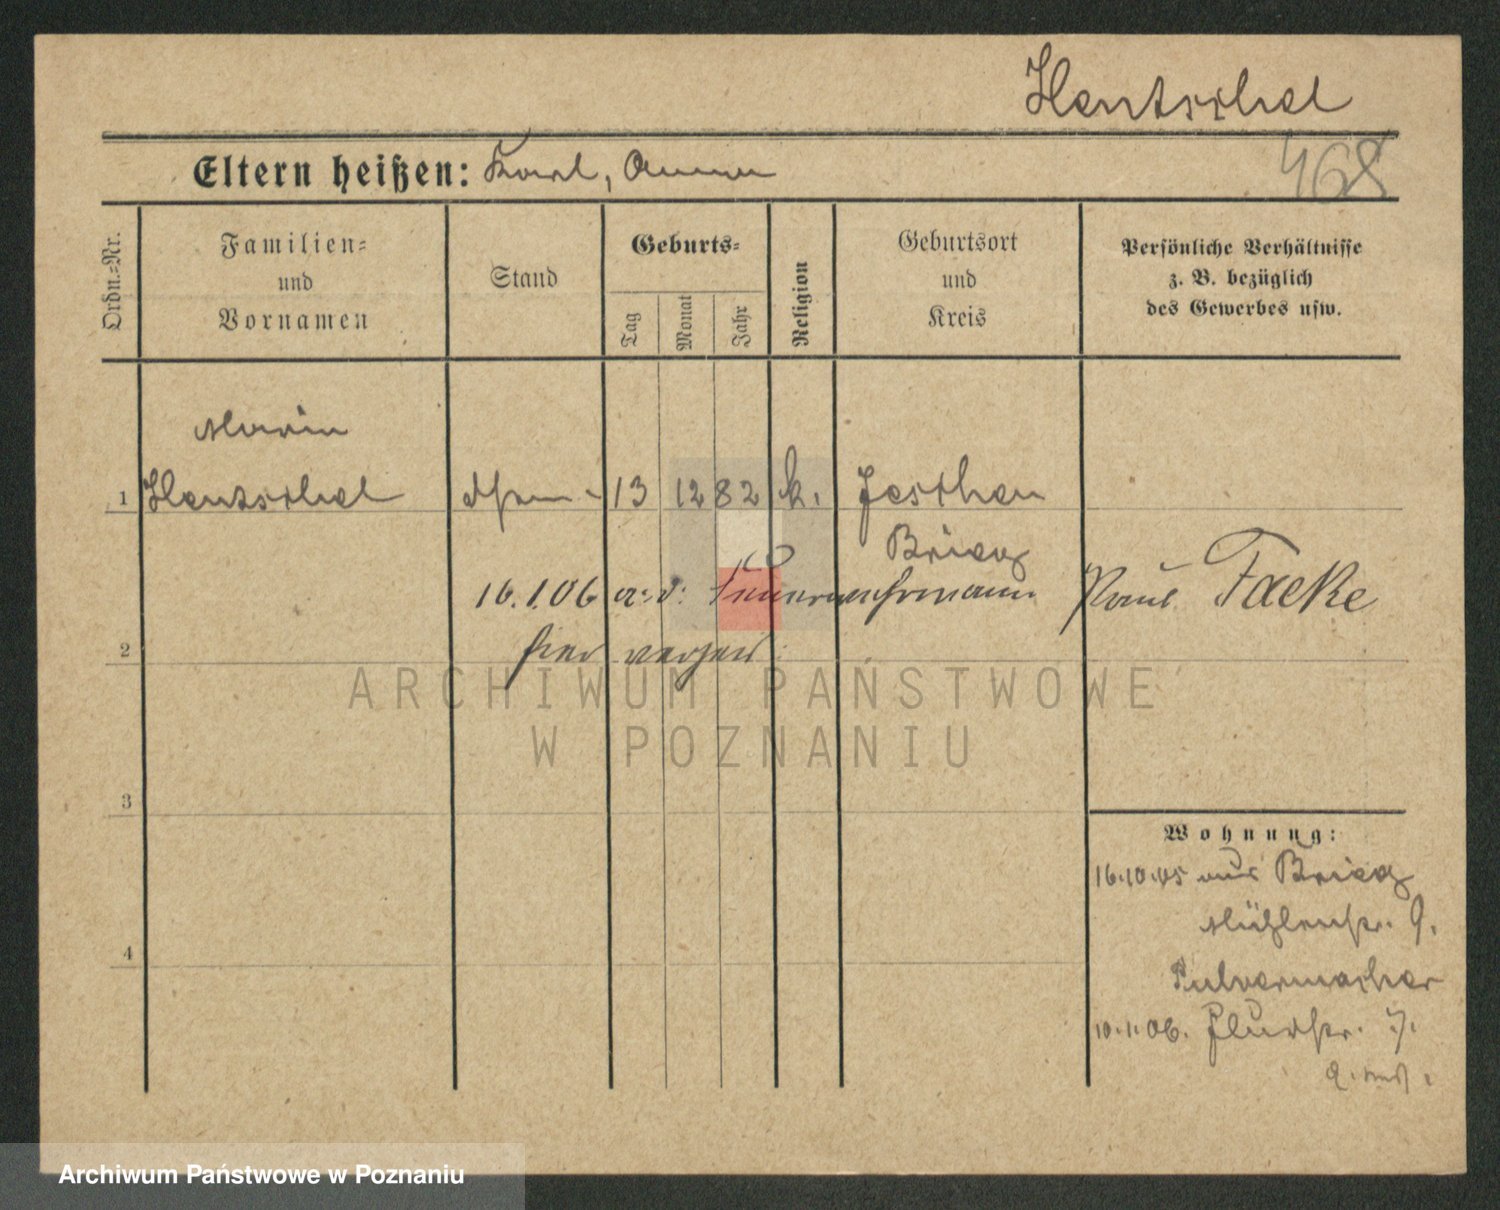 Hentschel
Eltern heißen: Karl, Anna
468
Ordn.=Nr.
Familien=
und
Vornamen
Stand
Geburts=
Tag
Monat
Jahr
Religion
Geburtsort
und
Kreis
Persönliche Verhältnisse
z. B. bezüglich
des Gewerbes usw.
Maria
1 Hentschel 13 12 82 k. Jeschen
Brieg
16.1.06 a. d. Feuerwehrmann Paul Facke
2 hier verzen
ARCHIWUM PAŃSTWOWE
W POZNANIU
3
Wohnung:
16.10.05 aus Brieg
Mühlenstr. 9.
Pulvermacher
4
10.1.06. 7.
Archiwum Państwowe w Poznaniu